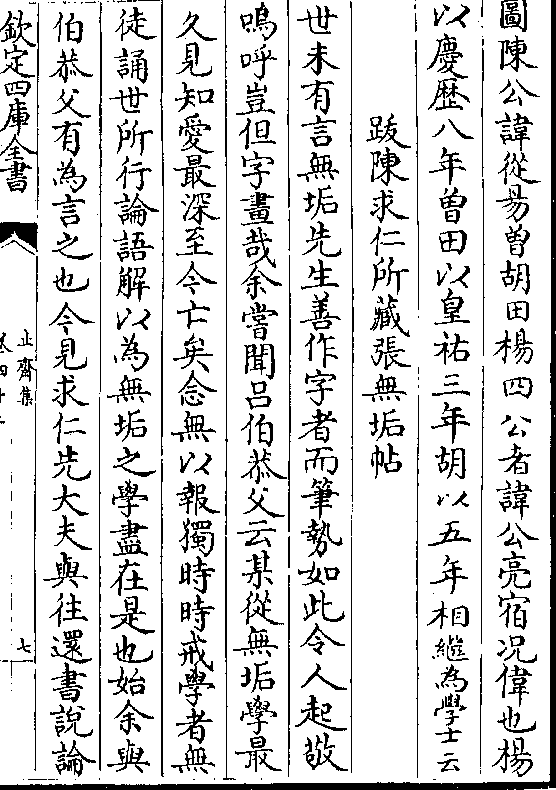 圖陳公諱從易曽胡田楊四公者諱公亮宿况偉也楊
以慶歴八年曽田以皇祐三年胡以五年相繼為學士云
跋陳求仁所藏張無垢帖
世未有言無垢先生善作字者而筆勢如此令人起敬
嗚呼豈但字畫哉余嘗聞吕伯恭父云某從無垢學最
久見知愛最深至今亡矣念無以報獨時時戒學者無
徒誦世所行論語解以為無垢之學盡在是也始余與
伯恭父有為言之也今見求仁先大夫與往還書說論
欽定四庫全書
止齋集
卷四十二
七